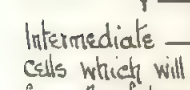 Intermediate
cells which will